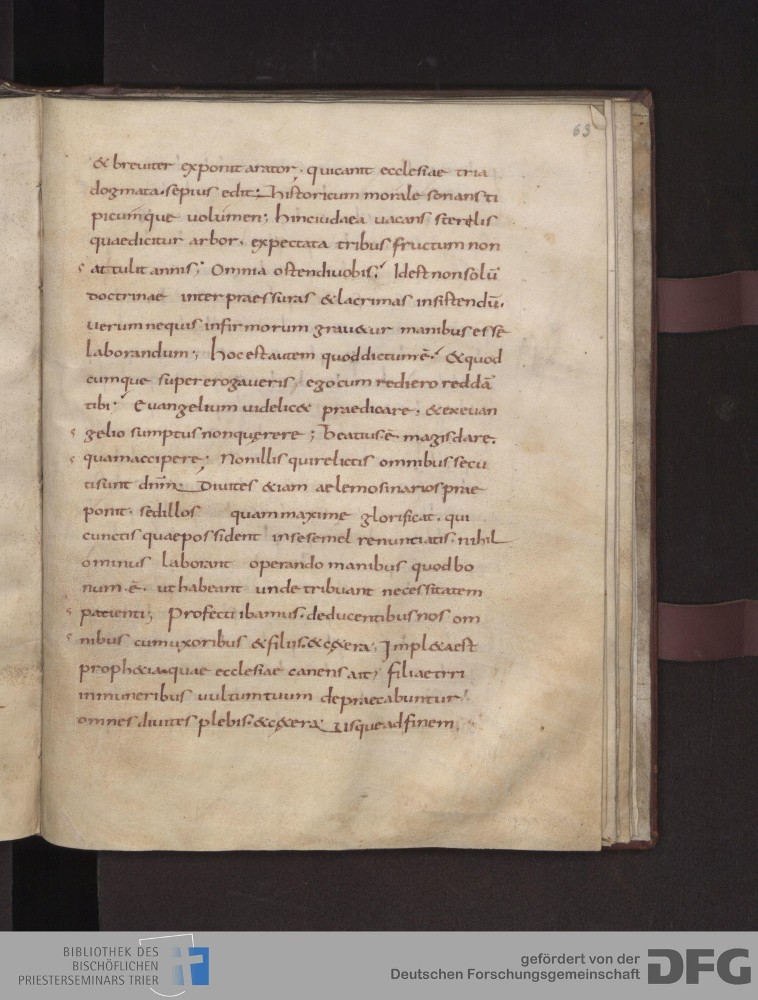 63
& breuiter exponit arator · quicanit ecclesiae tria
dogmata · sepius edit; historicum morale sonans ti
picumque uolumen; hinc iudaea uacans sterelis
quae dicitur arbor · expectata tribus fructum non
attulit annis; Omnia ostendi uobis; Idest non solū
doctrinae inter praessuras & lacrimas insistendū ·
uerum nequis infirmorum grau&ur manibus esse
laborandum; hoc est autem quod dictum ē · & quod
cumque supererogaueris, ego cum rediero reddā
tibi; Euangelium uidelic& praedicare · & ex euan
gelio sumptus non querere; Beatius ē magis dare ·
quam accipere; Non illis qui relictis omnibus secu
ti sunt dnm; Diuites &iam aelemosinarios prae
ponit · sed illos quam maxime glorificat · qui
cunctis quae possident in se semel renuntiatis · nihil
ominus laborant operando manibus quod bo
num ē · ut habeant unde tribuant necessitatem
patienti; Profecti ibamus · deducentibus nos om
nibus cum uxoribus & filiis · & c&era; Impl&a est
proph&ia quae ecclesiae canens ait; filiae tiri
in muneribus uultum tuum depraecabuntur
omnes diuites plebis · & c&era Usque ad finem
BIBLIOTHEK DES
BISCHÖFLICHEN
PRIESTERSEMINARS TRIER
gefördert von der
Deutschen Forschungsgemeinschaft
DFG